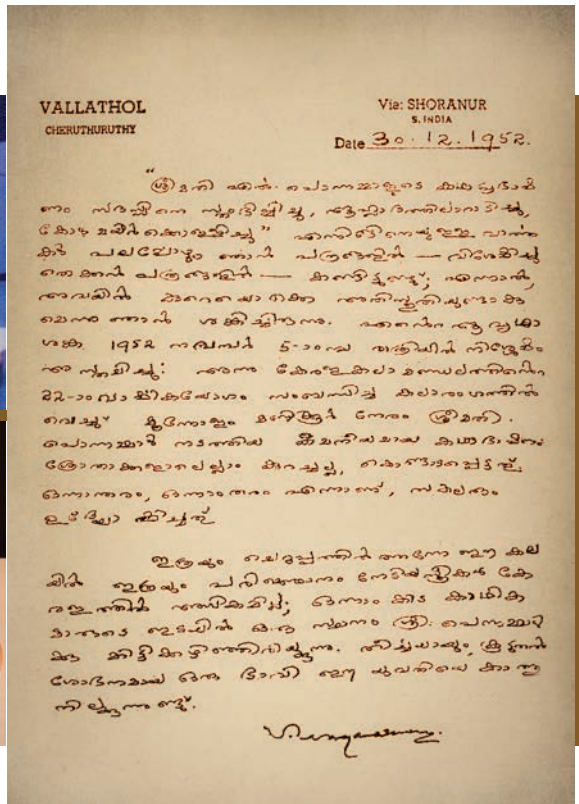 VALLATHOL
CHERUTHURUTHY
Via: SHORANUR
S. INDIA
Date 30.12.1952.
"ശ്രീമതി എൻ. പൊന്നമ്മാളുടെ കഥാപ്രഭാഷ
ണം സദസ്സിനെ സ്തംഭിപ്പിച്ചു, ആഹ്ലാദത്തിലാറാടിച്ചു,
കോൾമയിർക്കൊള്ളിച്ചു" എന്നിങ്ങിനെയുള്ള വാർത്ത
കൾ പലപ്പോഴും ഞാൻ പത്രങ്ങളിൽ — വിശേഷിച്ചു
തെക്കൻ പത്രങ്ങളിൽ — കണ്ടിട്ടുണ്ട്; എന്നാൽ,
അവയിൽ കുറെയൊക്കെ അതിസ്തുതിയുണ്ടാകു
മെന്നു ഞാൻ ശങ്കിച്ചിരുന്നു. എന്റെ ആ വൃഥാ
ശങ്ക 1952 നവമ്പർ 5-ാംനു രാത്രിയിൽ നിശ്ശേഷം
അസ്തമിച്ചു: അന്നു കേരളകലാമണ്ഡലത്തിന്റെ
22-ാം വാർഷികയോഗം സംബന്ധിച്ച് കലാരംഗത്തിൽ
വെച്ച് മൂന്നോളം മണിക്കൂർ നേരം ശ്രീമതി.
പൊന്നമ്മാൾ നടത്തിയ കമനീയമായ കഥാഭാഷണം
ശ്രോതാക്കളാലെല്ലാം കുറച്ചല്ല, കൊണ്ടാടപ്പെട്ടത്.
ഒന്നാന്തരം, ഒന്നാംതരം എന്നാണ്, സകലരും
ഉദ്ഘോഷിച്ചത്.
ഇത്രയും ചെറുപ്പത്തിൽത്തന്നേ ഈ കല
യിൽ ഇത്രയും പരിജ്ഞാനം നേടിയ സ്ത്രീകൾ കേ
രളത്തിൽ അധികമില്ല; ഒന്നാംകിട കാഥിക
മാരുടെ ഇടയിൽ ഒരു സ്ഥാനം ശ്രീ: പൊന്നമ്മാൾ
ക്കു കിട്ടിക്കഴിഞ്ഞിരിയ്ക്കുന്നു. തീർച്ചയായും, കൂടുതൽ
ശോഭനമായ ഒരു ഭാവി ഈ യുവതിയെ കാത്തു
നില്ക്കുന്നുണ്ട്.